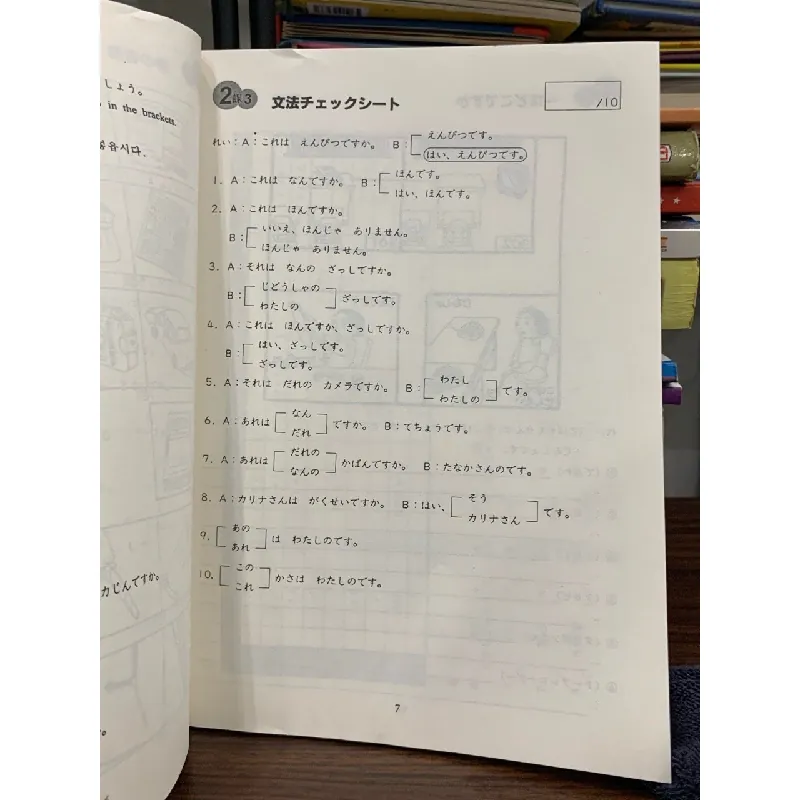 しょう。
in the brackets.
읍시다.
カじんですか。
2課3 文法チェックシート
/10
れい：A：これは えんぴつですか。 B： えんぴつです。
はい、えんぴつです。
1. A：これは なんですか。 B： ほんです。
はい、ほんです。
2. A：これは ほんですか。
B： いいえ、ほんじゃ ありません。
ほんじゃ ありません。
3. A：それは なんの ざっしですか。
B： じどうしゃの
わたしの ざっしです。
4. A：これは ほんですか、ざっしですか。
B： はい、ざっしです。
ざっしです。
5. A：それは だれの カメラですか。 B： わたし
わたしの です。
6. A：あれは なん
だれ ですか。 B：てちょうです。
7. A：あれは だれの
なんの かばんですか。 B：たなかさんのです。
8. A：カリナさんは がくせいですか。 B：はい、 そう
カリナさん です。
9. あの
あれ は わたしのです。
10. この
これ かさは わたしのです。
7